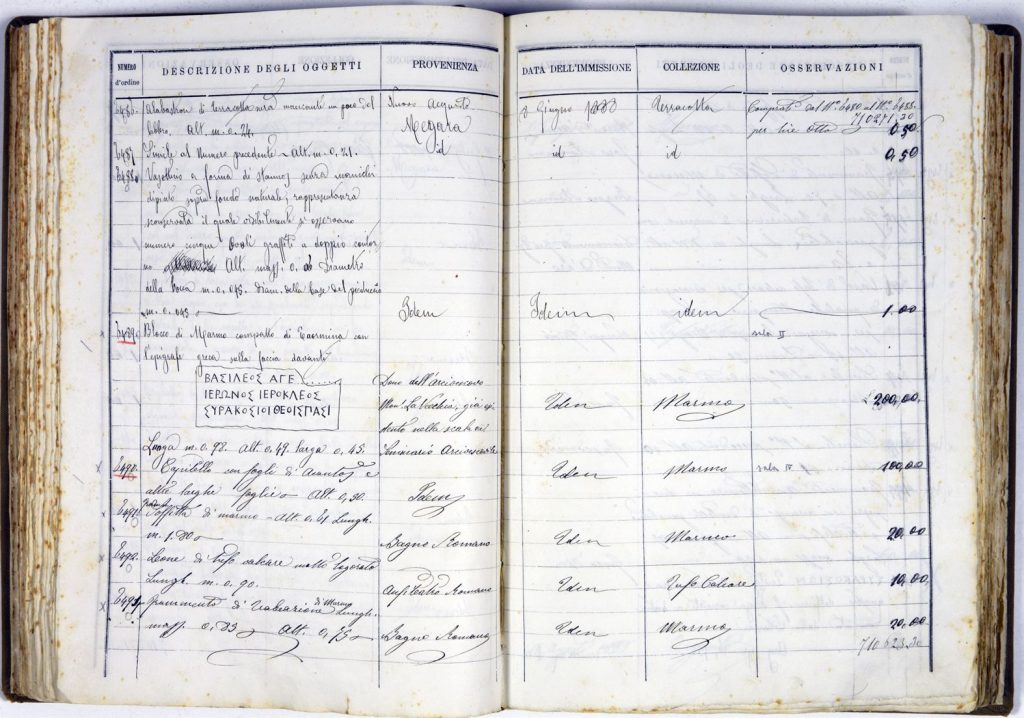 NUMERO d'ordine
DESCRIZIONE DEGLI OGGETTI
PROVENIENZA
DATA DELL'IMMISSIONE
COLLEZIONE
OSSERVAZIONI
6486. Alabastron di terracotta mancante un poco del
labbro. Alt. m. 0. 24.
Megara
8 Giugno
Terracotta
Comprati dal N.° 6480 al N.° 6488.
710271,30
per lire otto
0,50
6487 Simile al numero precedente - Alt. m. 0. 21.
id
id
id
0,50
6488. Vasettino a forma di stamnos senza manichi
dipinto sopra fondo naturale; rappresentanza
sconservata il quale
numero cinque graffiti a doppio contor
no Alt. mass. 0. Diametro
della bocca m. 0.075. diam. della base del pieduccio
m. 0.045
Idem
Idem
idem
1.00
6489. Blocco di Marmo compatto di Taormina con
l'epigrafe greca sulla faccia davanti
sala II
ΒΑΣΙΛΕΟΣ ΑΓΕ......
ΙΕΡΩΝΟΣ ΙΕΡΟΚΛΕΟΣ
ΣΥΡΑΚΟΣΙΟΙ ΘΕΟΙΣ ΠΑΣΙ
Dono dell'Arcivescovo
Mon.r La Vecchia, già esi
stente nella scala del
Seminario Arcivescovile
Iden
Marmo
200,00
Lunga m. 0. 98. Alt. 0, 49. larga 0, 45.
6490. Capitello con fogli di Acanto e
altre larghe foglie Alt. 0, 30.
Idem
Iden
Marmo
sala IV
100,00
6491. Soffitta di marmo - Alt. 0. 61 Lungh.
m. 1. 80
Bagno Romano
Iden
Marmo
20.00
6492. Leone di tufo calcare molto logorato
Lungh. m. 0. 90.
Anfiteatro Romano
Iden
Tufo Calcare
10,00
6493. Frammento di Trabeazione di Marmo Lungh.
mass. 0, 83 Alt. 0, 75
Bagno Romano
Iden
Marmo
20,00
710623.30